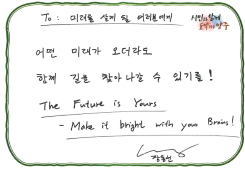 To : 미래를 살게 될 여러분에게
시민과 함께
어떤 미래가 오더라도
함께 길을 찾아나갈 수 있기를!
The Future is Yours
- Make it bright with your Brains!
장동선